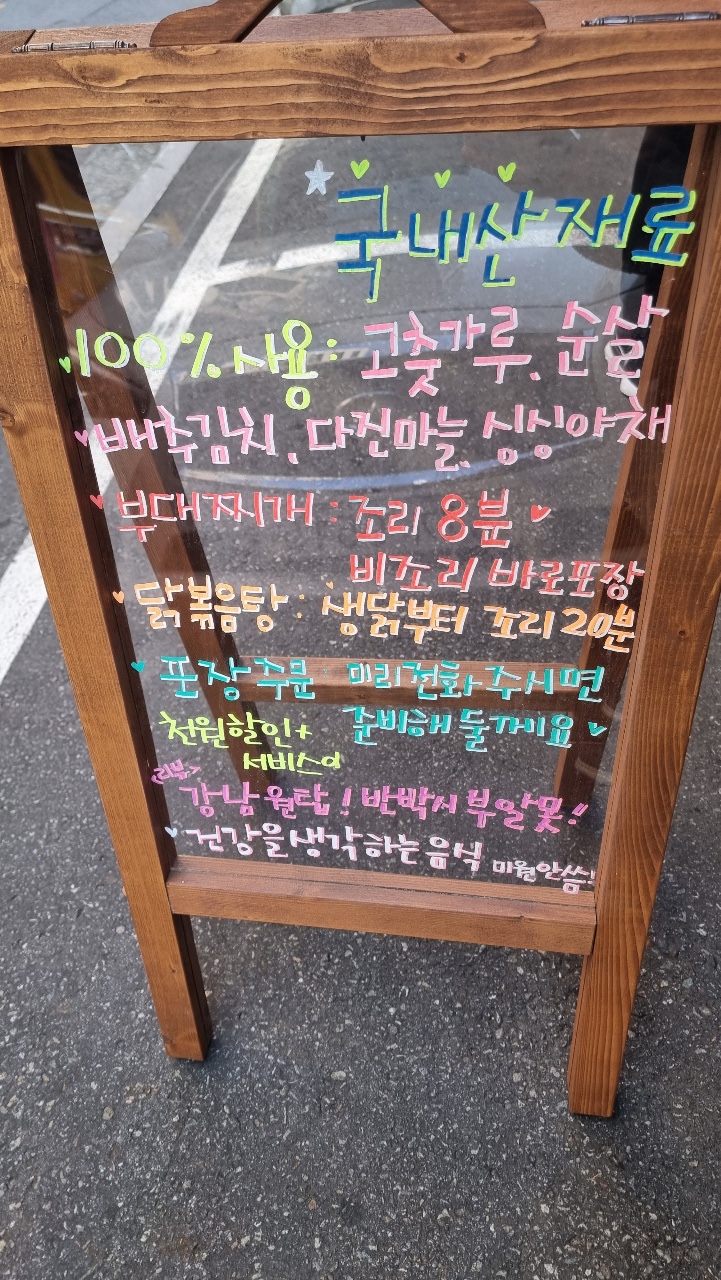 국내산 재료
100% 사용: 고춧가루. 순살
배추김치. 다진마늘. 싱싱야채
부대찌개 : 조리 8분
비조리 바로포장
닭볶음탕 : 생닭부터 조리 20분
포장주문 미리전화 주시면
준비해 둘께요
천원할인+
서비스
리뷰
강남 원탑! 반박시 부알못!!
건강을 생각하는 음식 미원안씀!!